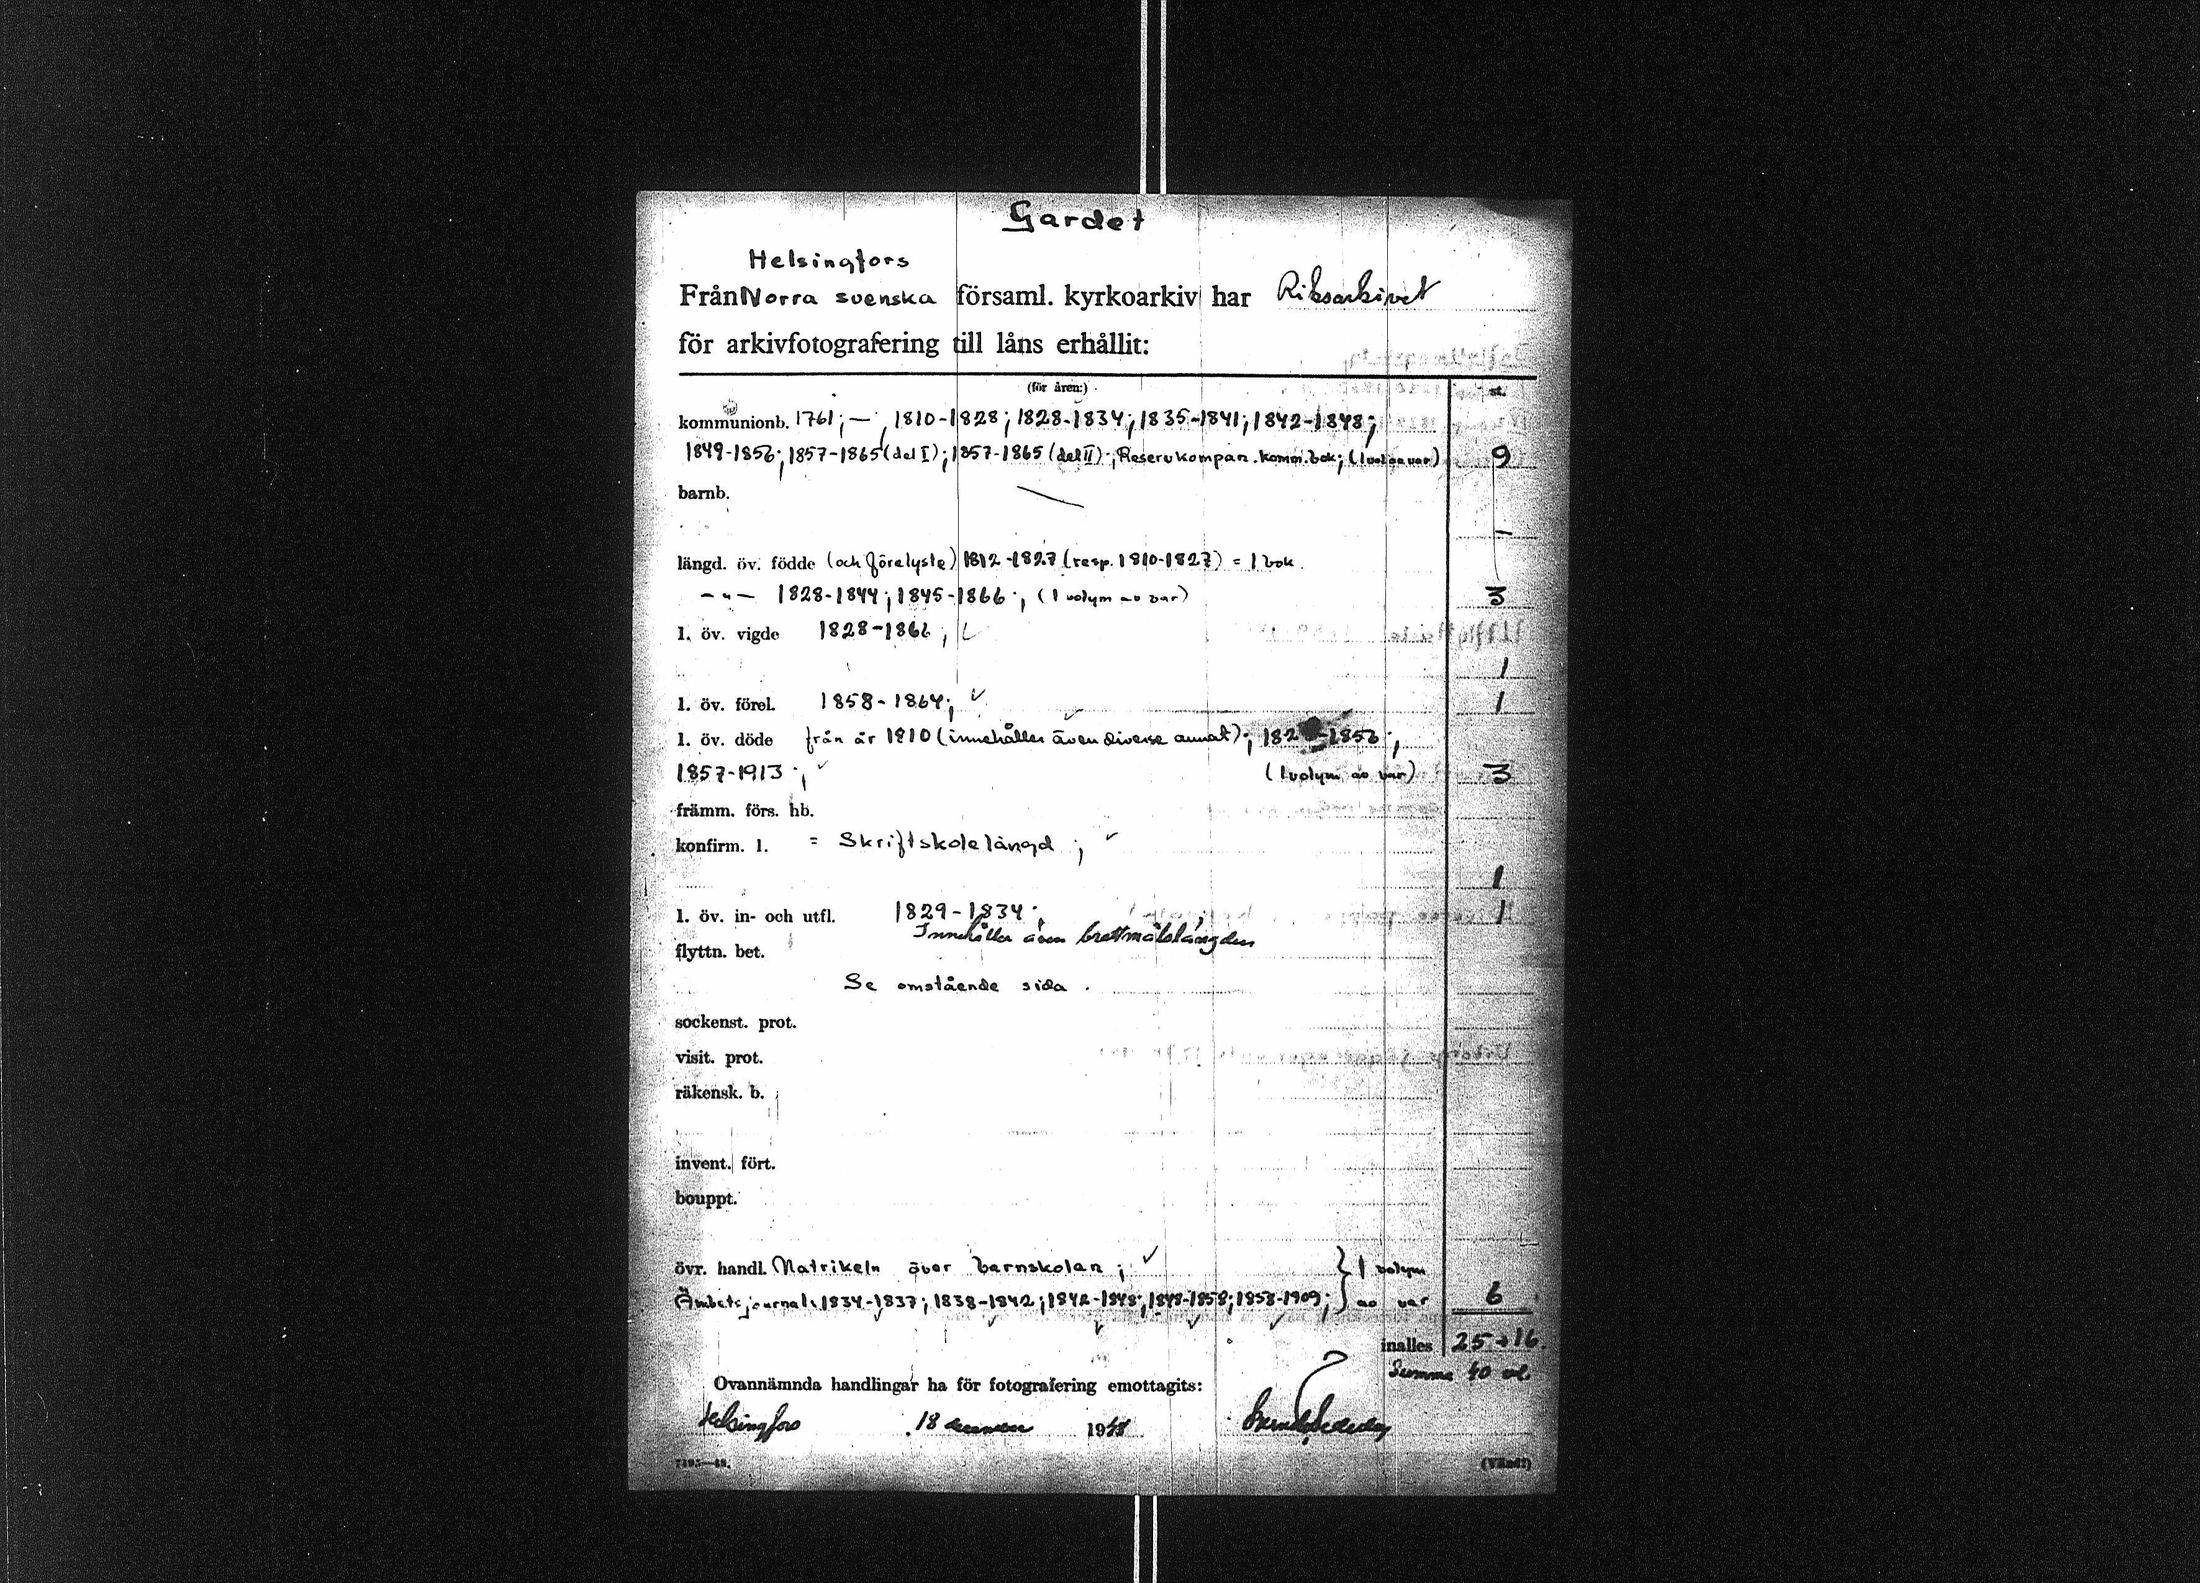 Gardet
Helsingfors
Från Norra svenska församl. kyrkoarkiv har Riksarkivet
för arkivfotografering till låns erhållit:
(för åren:) st.
kommunionb. 1761; — 1810-1828; 1828-1834; 1835-1841; 1842-1848;
1849-1856; 1857-1865 (del I); 1857-1865 (del II); Reservkompan. komm.bok; (1 vol av var) 9
barnb. —
—
längd. öv. födde (och förelyste) 1812-1827 (resp. 1810-1827) = 1 bok.
— " — 1828-1844; 1845-1866; (1 volym av var) 3
l. öv. vigde 1828-1866;
1
l. öv. förel. 1858-1864; 1
l. öv. döde från år 1810 (innehåller även diverse annat); -1856;
1857-1913; (1 volym av var) 3
främm. förs. hb.
konfirm. l. = Skriftskolelängd;
1
l. öv. in- och utfl. 1829-1834; 1
Innehåller även brottmålslängden
flyttn. bet.
Se omstående sida.
sockenst. prot.
visit. prot.
räkensk. b.
invent. fört.
bouppt.
övr. handl. Matrikeln över barnskolan; } 1 volym
Ämbetsjournal: 1834-1837; 1838-1842; 1842-1848; 1848-1858; 1858-1909; } av var 6
inalles 25+16.
Summa 40 vol.
Ovannämnda handlingar ha för fotografering emottagits:
Helsingfors 18 december 1948
(Vänd!)